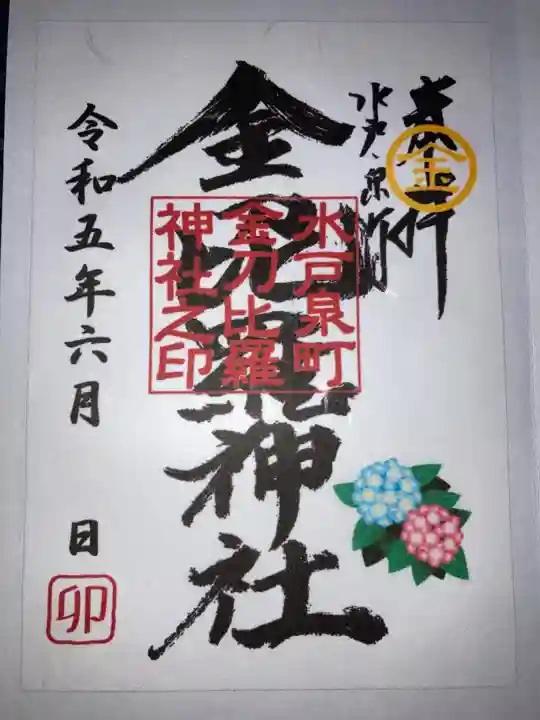 奉拝
水戸泉町
金
金刀比羅神社
水戸泉町
金刀比羅
神社之印
令和五年六月　日
卯